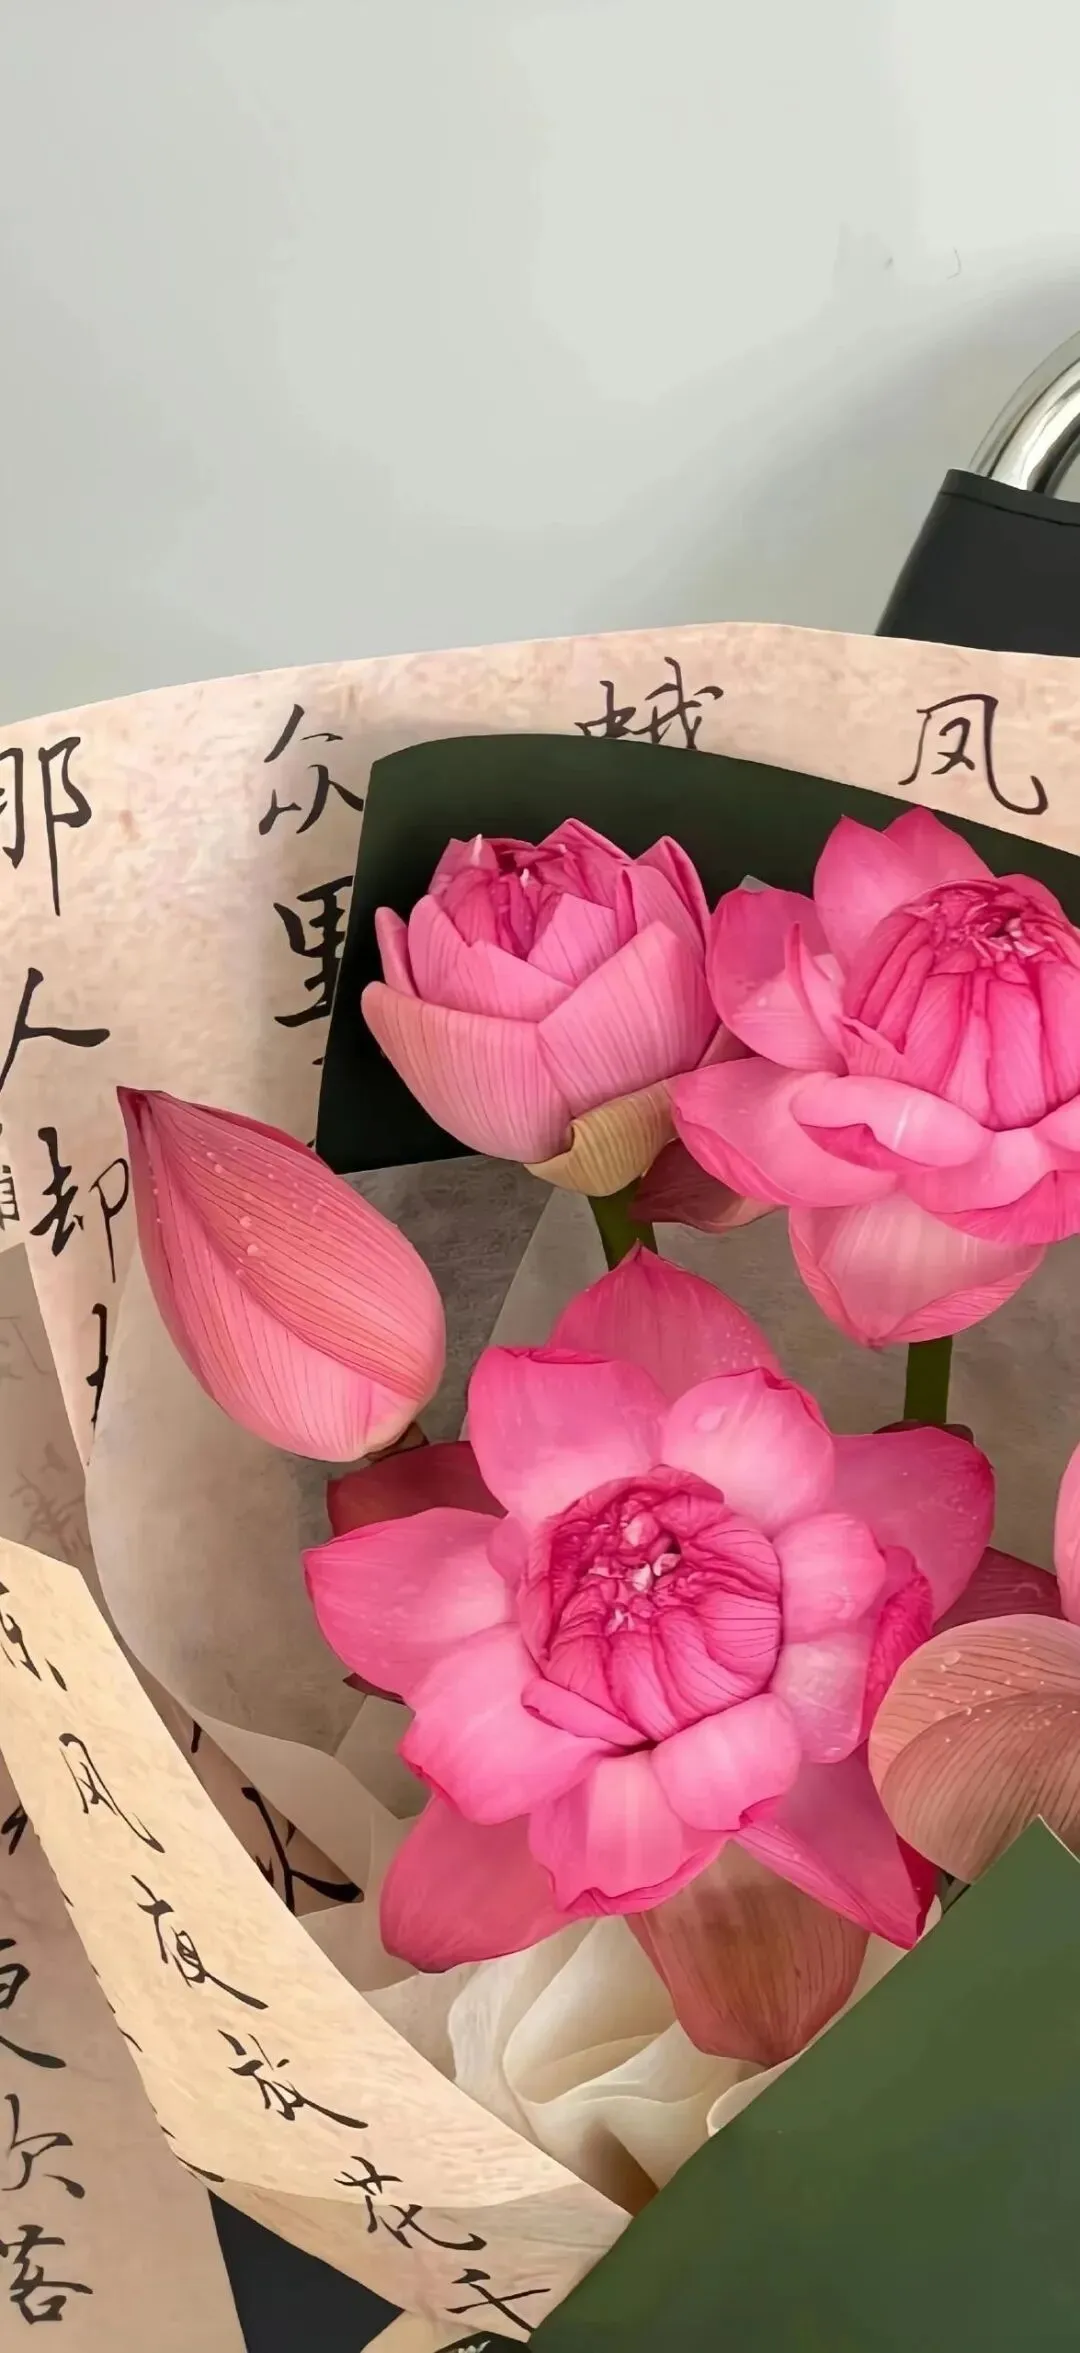 凤
蛾
众里
那人却
东风夜放花千
更
吹
落